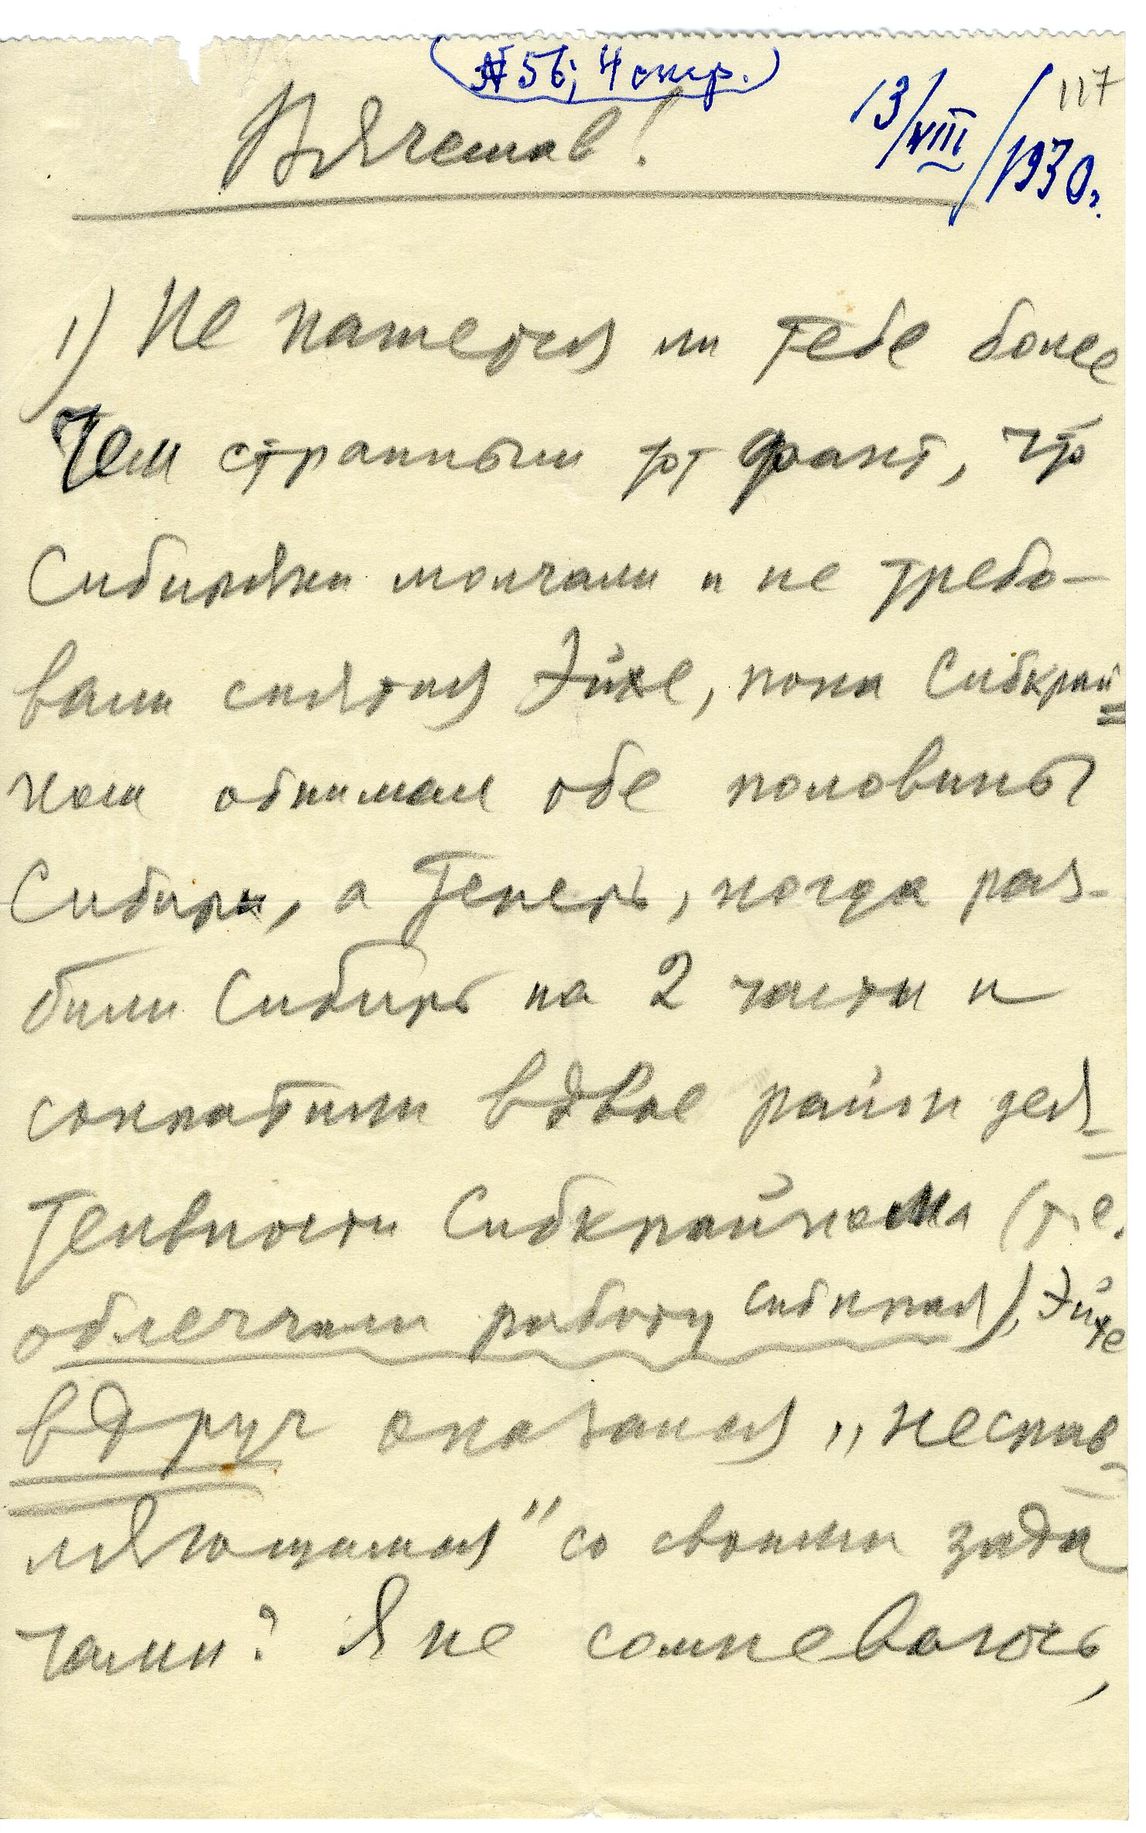 (№ 56; 4 стр.)
117
13/VIII/1930г.
Вячеслав!
1) Не кажется ли тебе более
чем странным тот факт, что
Сибиряки молчали и не требо-
вали снятия Эйхе, пока Сибкрай-
ком обнимал обе половины
Сибири, а теперь, когда раз-
били Сибирь на 2 части и
сократили вдвое район дея-
тельности Сибкрайкома (т.е.
облегчили работу Сибкрая), Эйхе
вдруг оказался „несправ-
ляющимся" со своими зада
чами? Я не сомневаюсь,